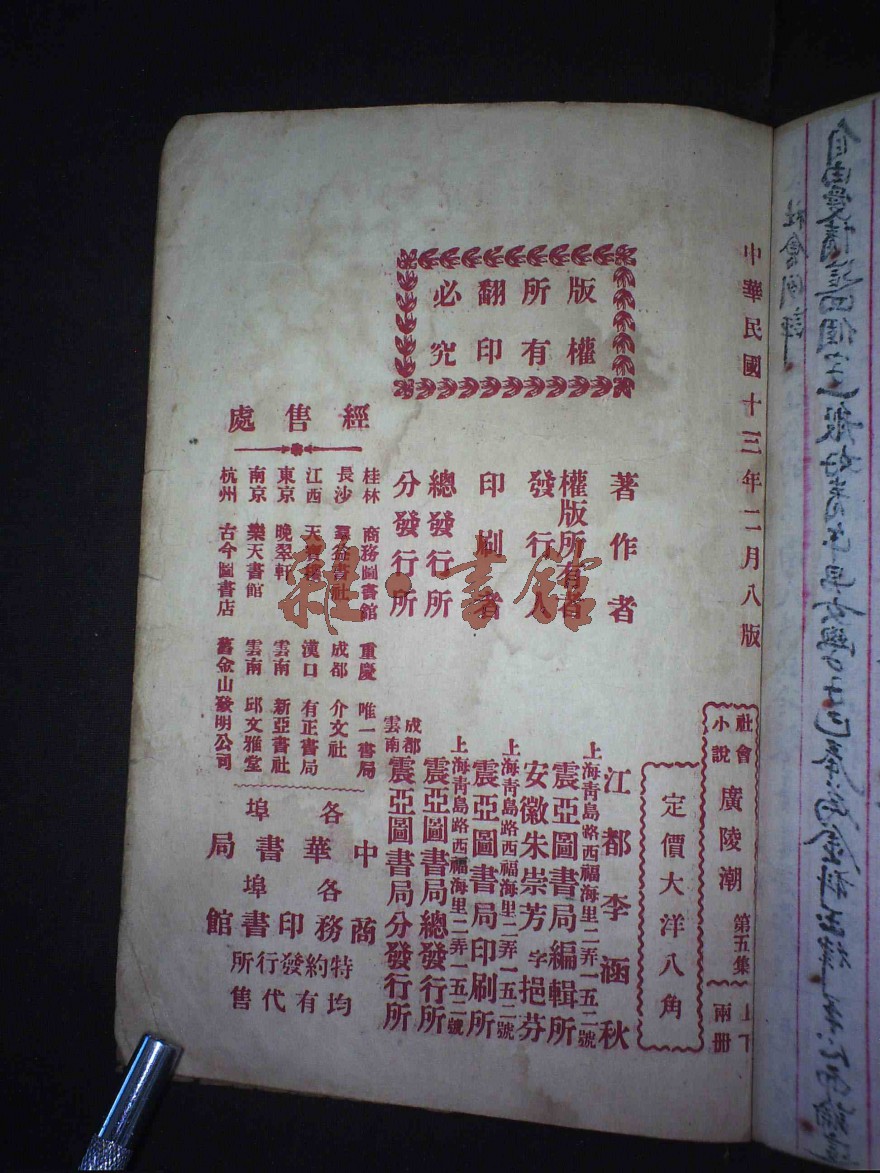 中華民國十三年二月八版
社會小說 廣陵潮 第五集 上下兩冊
定價大洋八角
版權所有
翻印必究
著作者 江都李涵秋
權版所有者 上海靑島路西福海里二弄一五二號 震亞圖書局編輯所
發行人 安徽朱崇芳字挹芬
印刷者 上海靑島路西福海里二弄一五二號 震亞圖書局印刷所
總發行所 上海靑島路西福海里二弄一五二號 震亞圖書局總發行所
分發行所 成都雲南 震亞圖書局分發行所
經售處
桂林 商務圖書館 重慶 唯一書局
長沙 羣益書社 成都 介文社
江西 天寶樓 漢口 有正書局
東京 晚翠軒 雲南 新亞書社
南京 樂天書館 雲南 邱文雅堂
杭州 古今圖書店 舊金山發明公司
中華書局
商務印書館
各埠
各埠
特約發行所
均有代售
雜·書館
社會
自由愛情這四個字